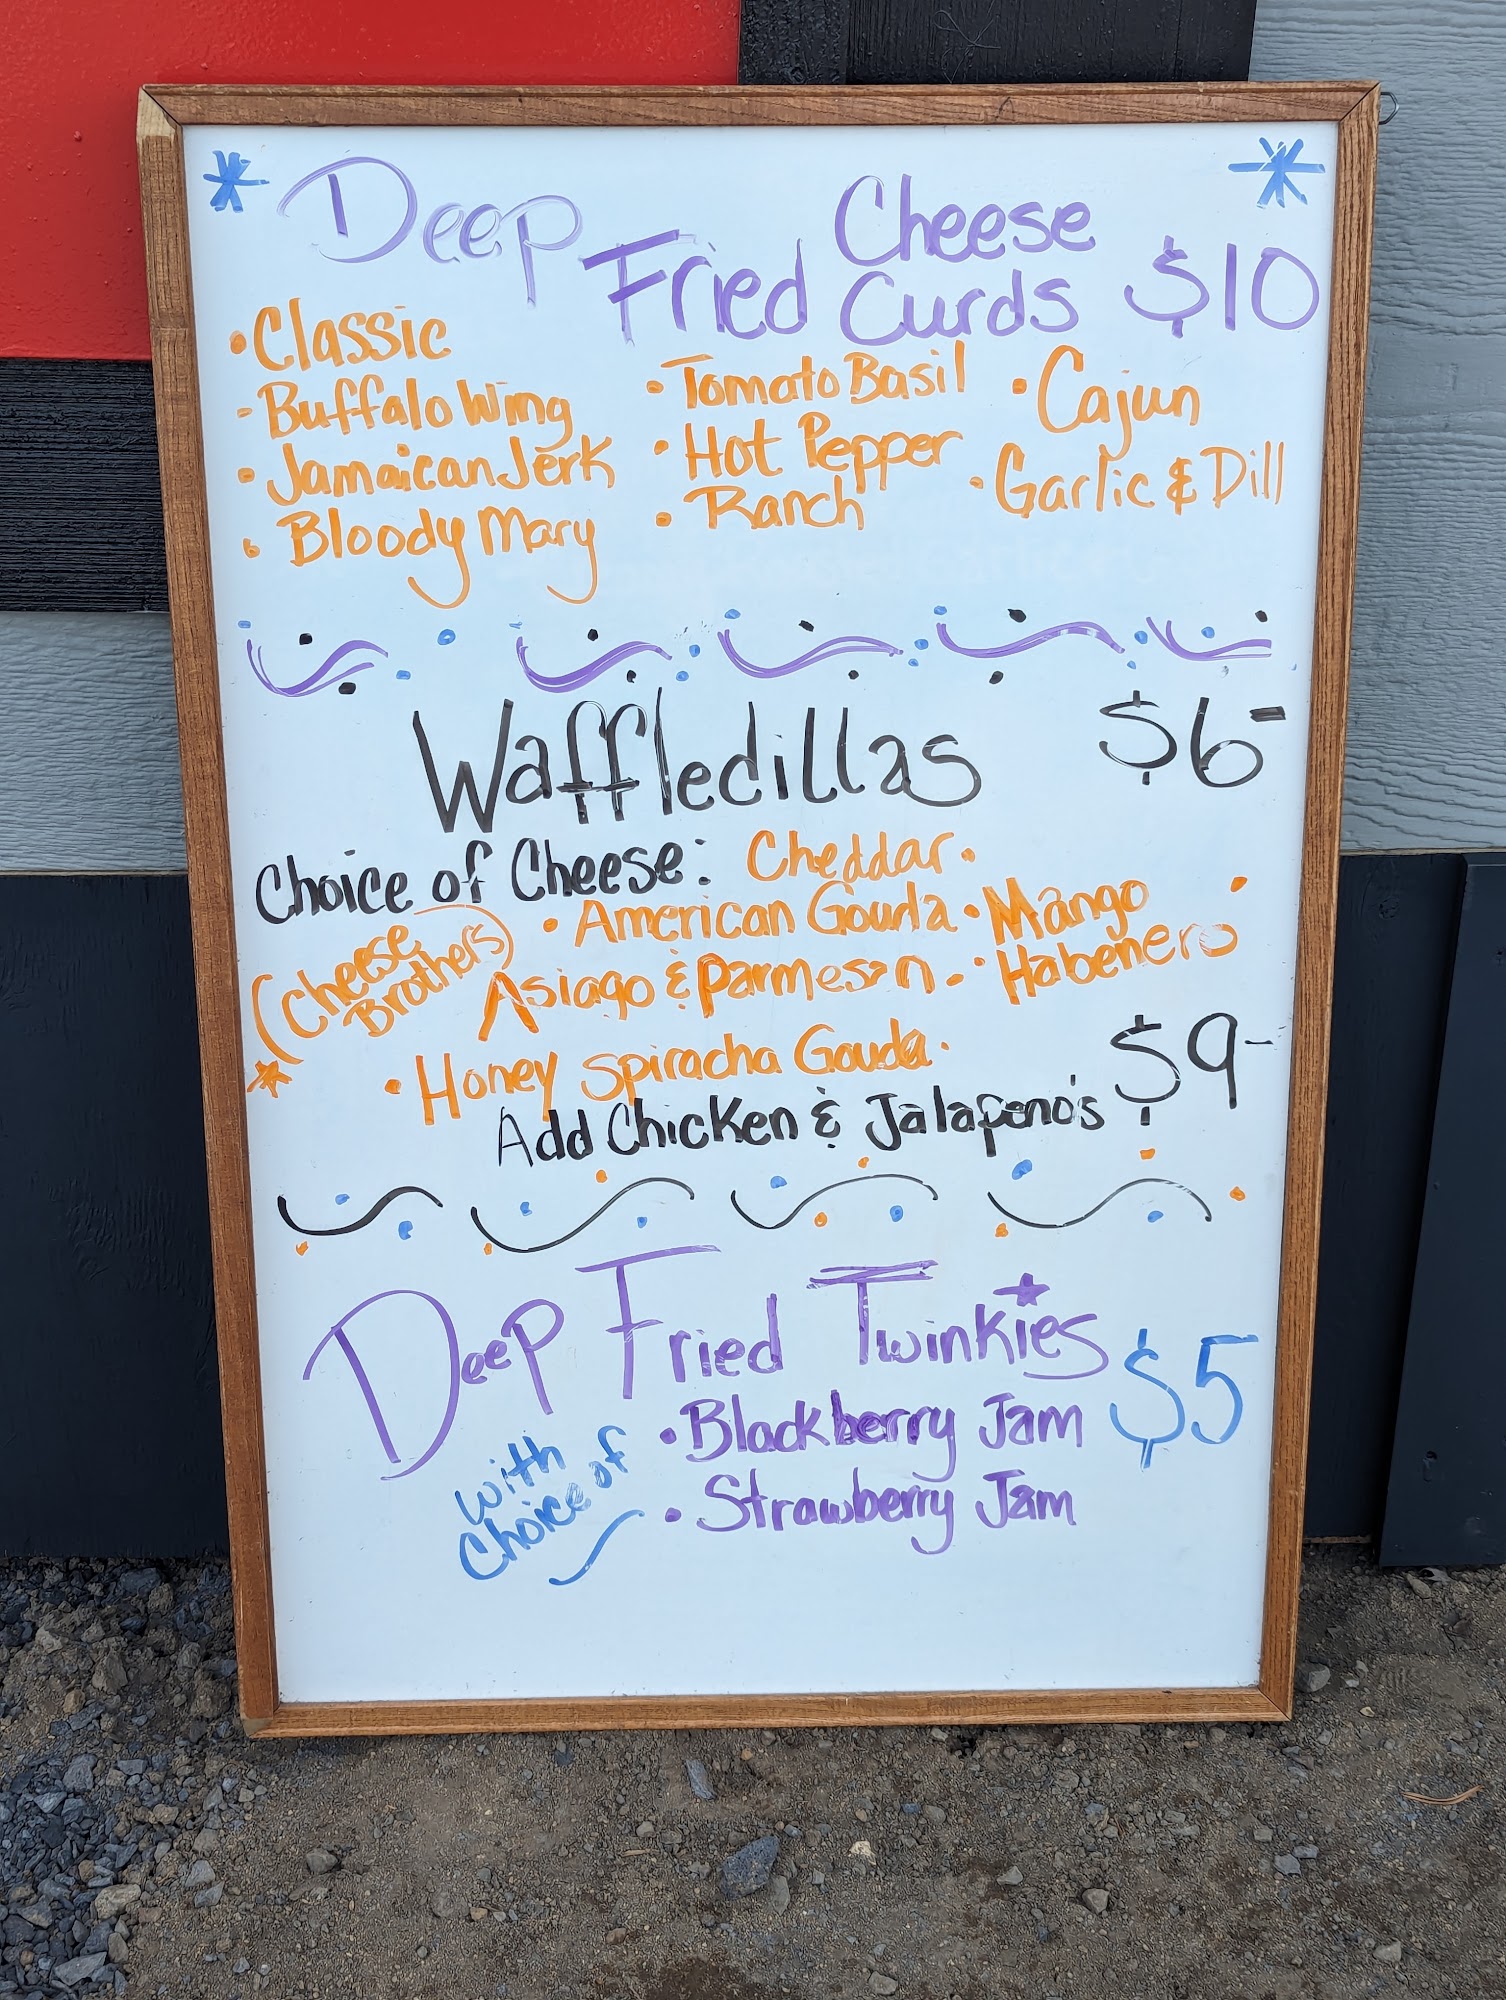 Deep Fried Cheese Curds $10
• Classic
- Buffalo Wing
• Jamaican Jerk
• Bloody Mary
• Tomato Basil
• Hot Pepper
• Ranch
• Cajun
• Garlic & Dill
Waffledillas $6-
Choice of Cheese: Cheddar •
(Cheese Brothers)
• American Gouda • Mango Habenero •
Asiago & Parmesan •
• Honey Spiracha Gouda •
Add Chicken & Jalapeno's $9-
Deep Fried Twinkies $5
with Choice of
• Blackberry Jam
• Strawberry Jam